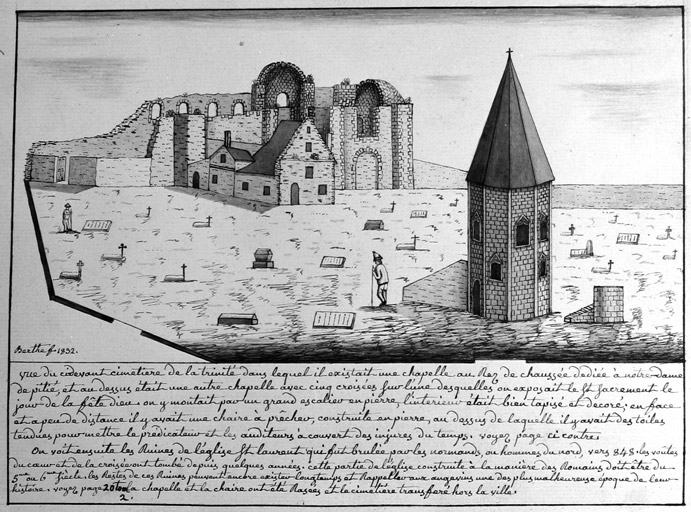 Berthe f. 1832.
vue du cidevant cimetiere de la trinité dans lequel il existait une chapelle au Rez de chaussée dediée à notre-dame
de pitié, et au dessus était une autre chapelle avec cinq croisées sur l'une desquelles on exposait le St Sacrement le
jour de la fête dieu : on y montait par un grand escalier en pierre, l'interieur était bien tapissé et decoré; en face
et a peu de distance il y avait une chaire à prêcher, construite en pierre, au dessus de laquelle il y avait des toiles
tendues pour mettre le prédicateur et les auditeurs à couvert des injures du temps. voyez page ci contre.
On voit ensuite les Ruines de l'église St laurent qui fut brulée par les normands, ou hommes du nord, vers 848. les voûtes
du cœur et de la croisée ont tombé depuis quelques années. cette partie de l'église construite à la manière des Romains doit être du
5e ou 6e Siècle. les Restes de ces Ruines peuvent encore exister longtemps et Rappeller aux angevins une des plus malheureuse époque de leur
histoire. voyez page la chapelle et la chaire ont été Rasées et le cimetière transferé hors la ville.
2.